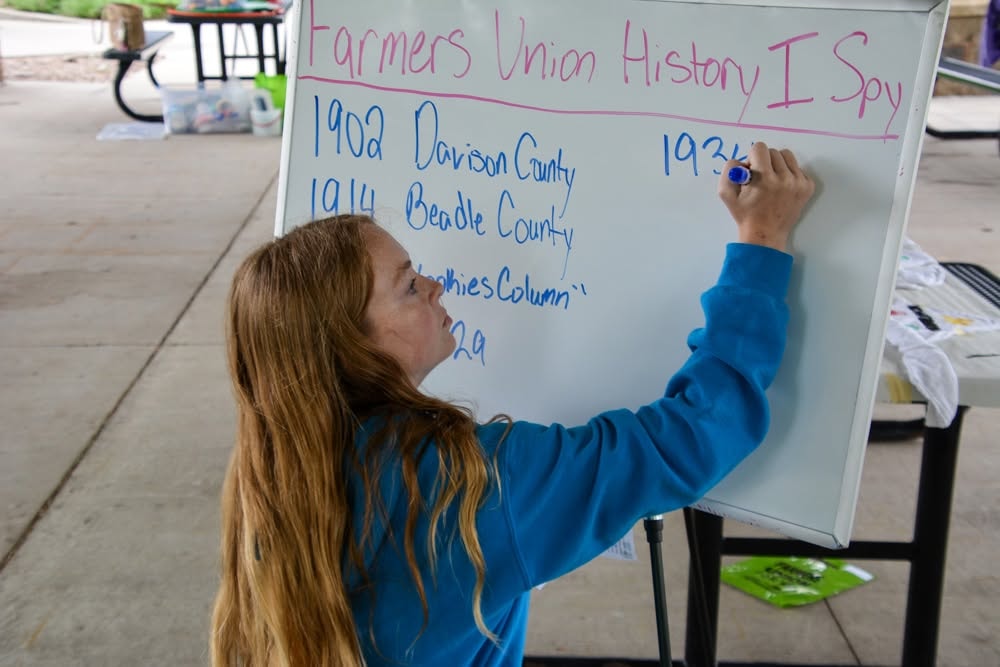 Farmers Union History I Spy
1902 Davison County
1914 Beadle County
Column"
29
193